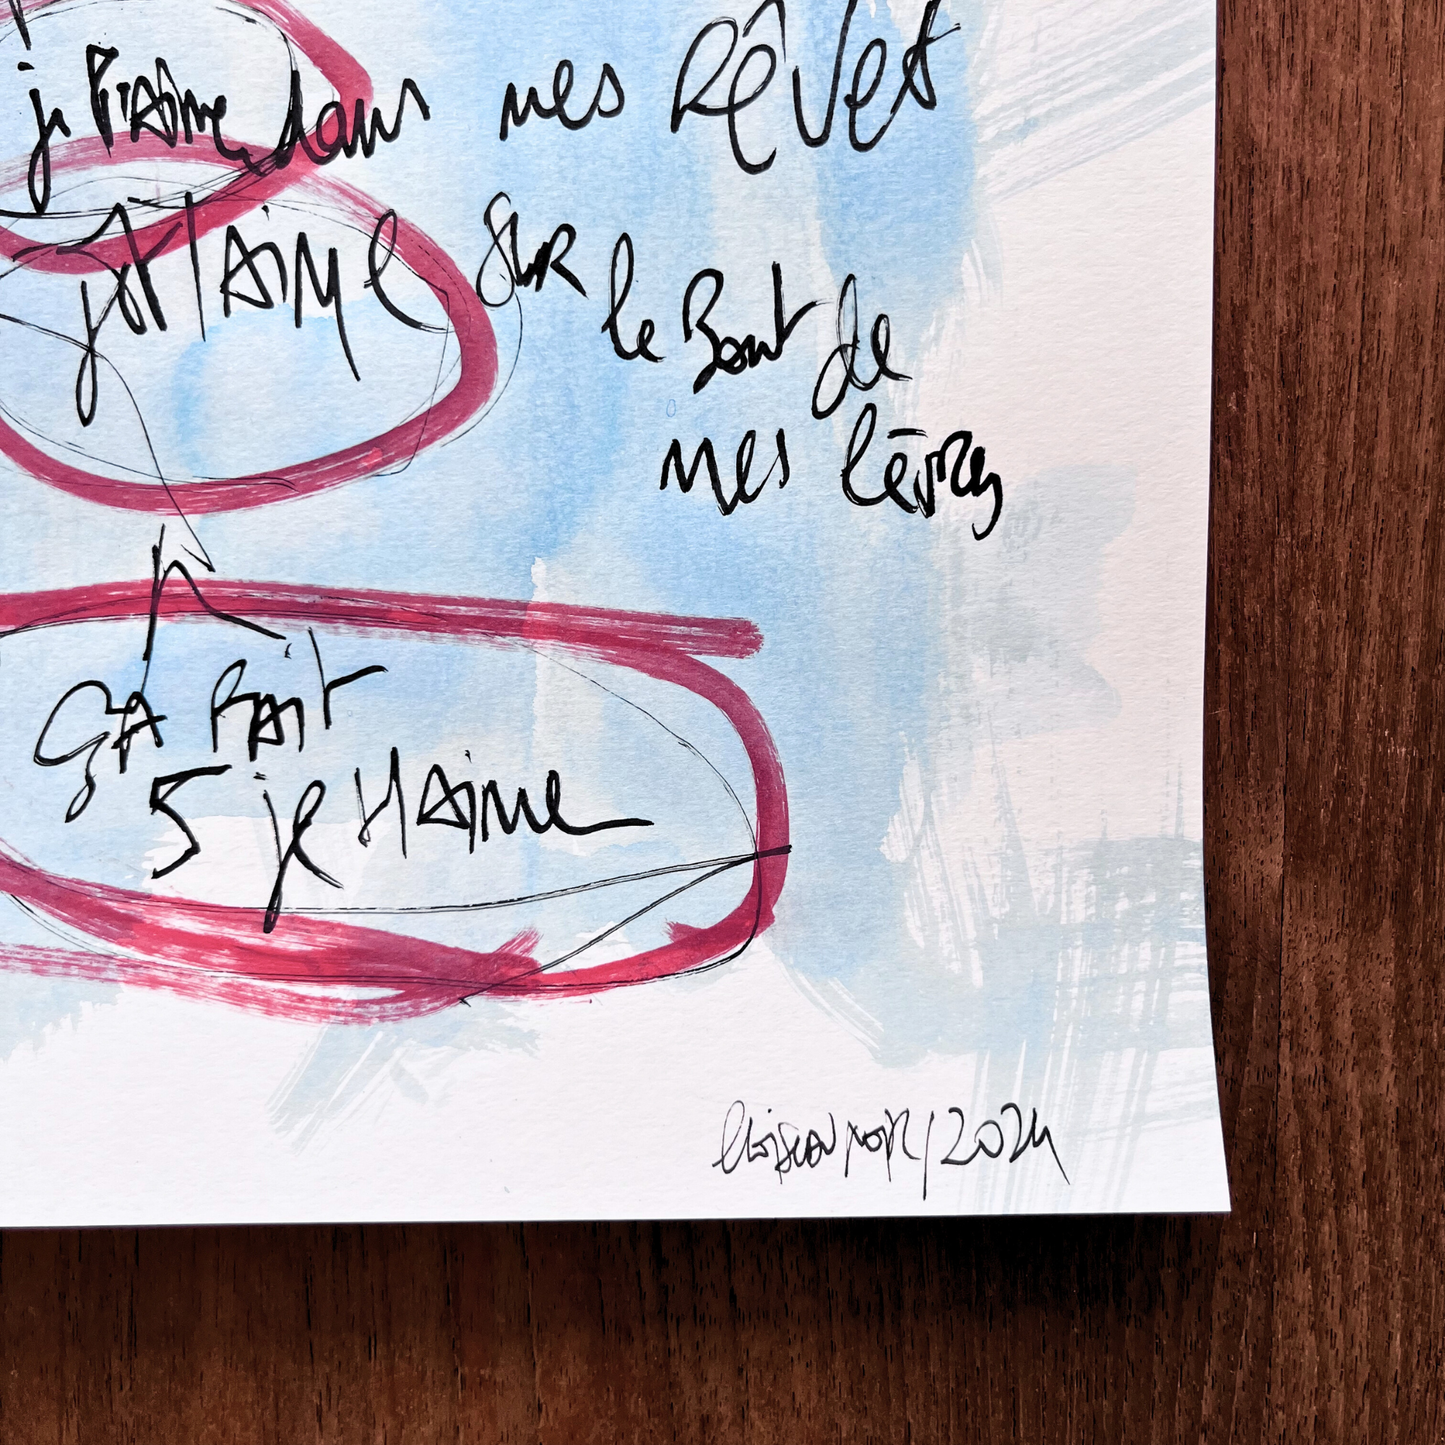 je t'aime dans mes Rêves
je t'Aime sur
le Bout de
mes lèvres
ÇA FAit
5 je t'Aime
/2024